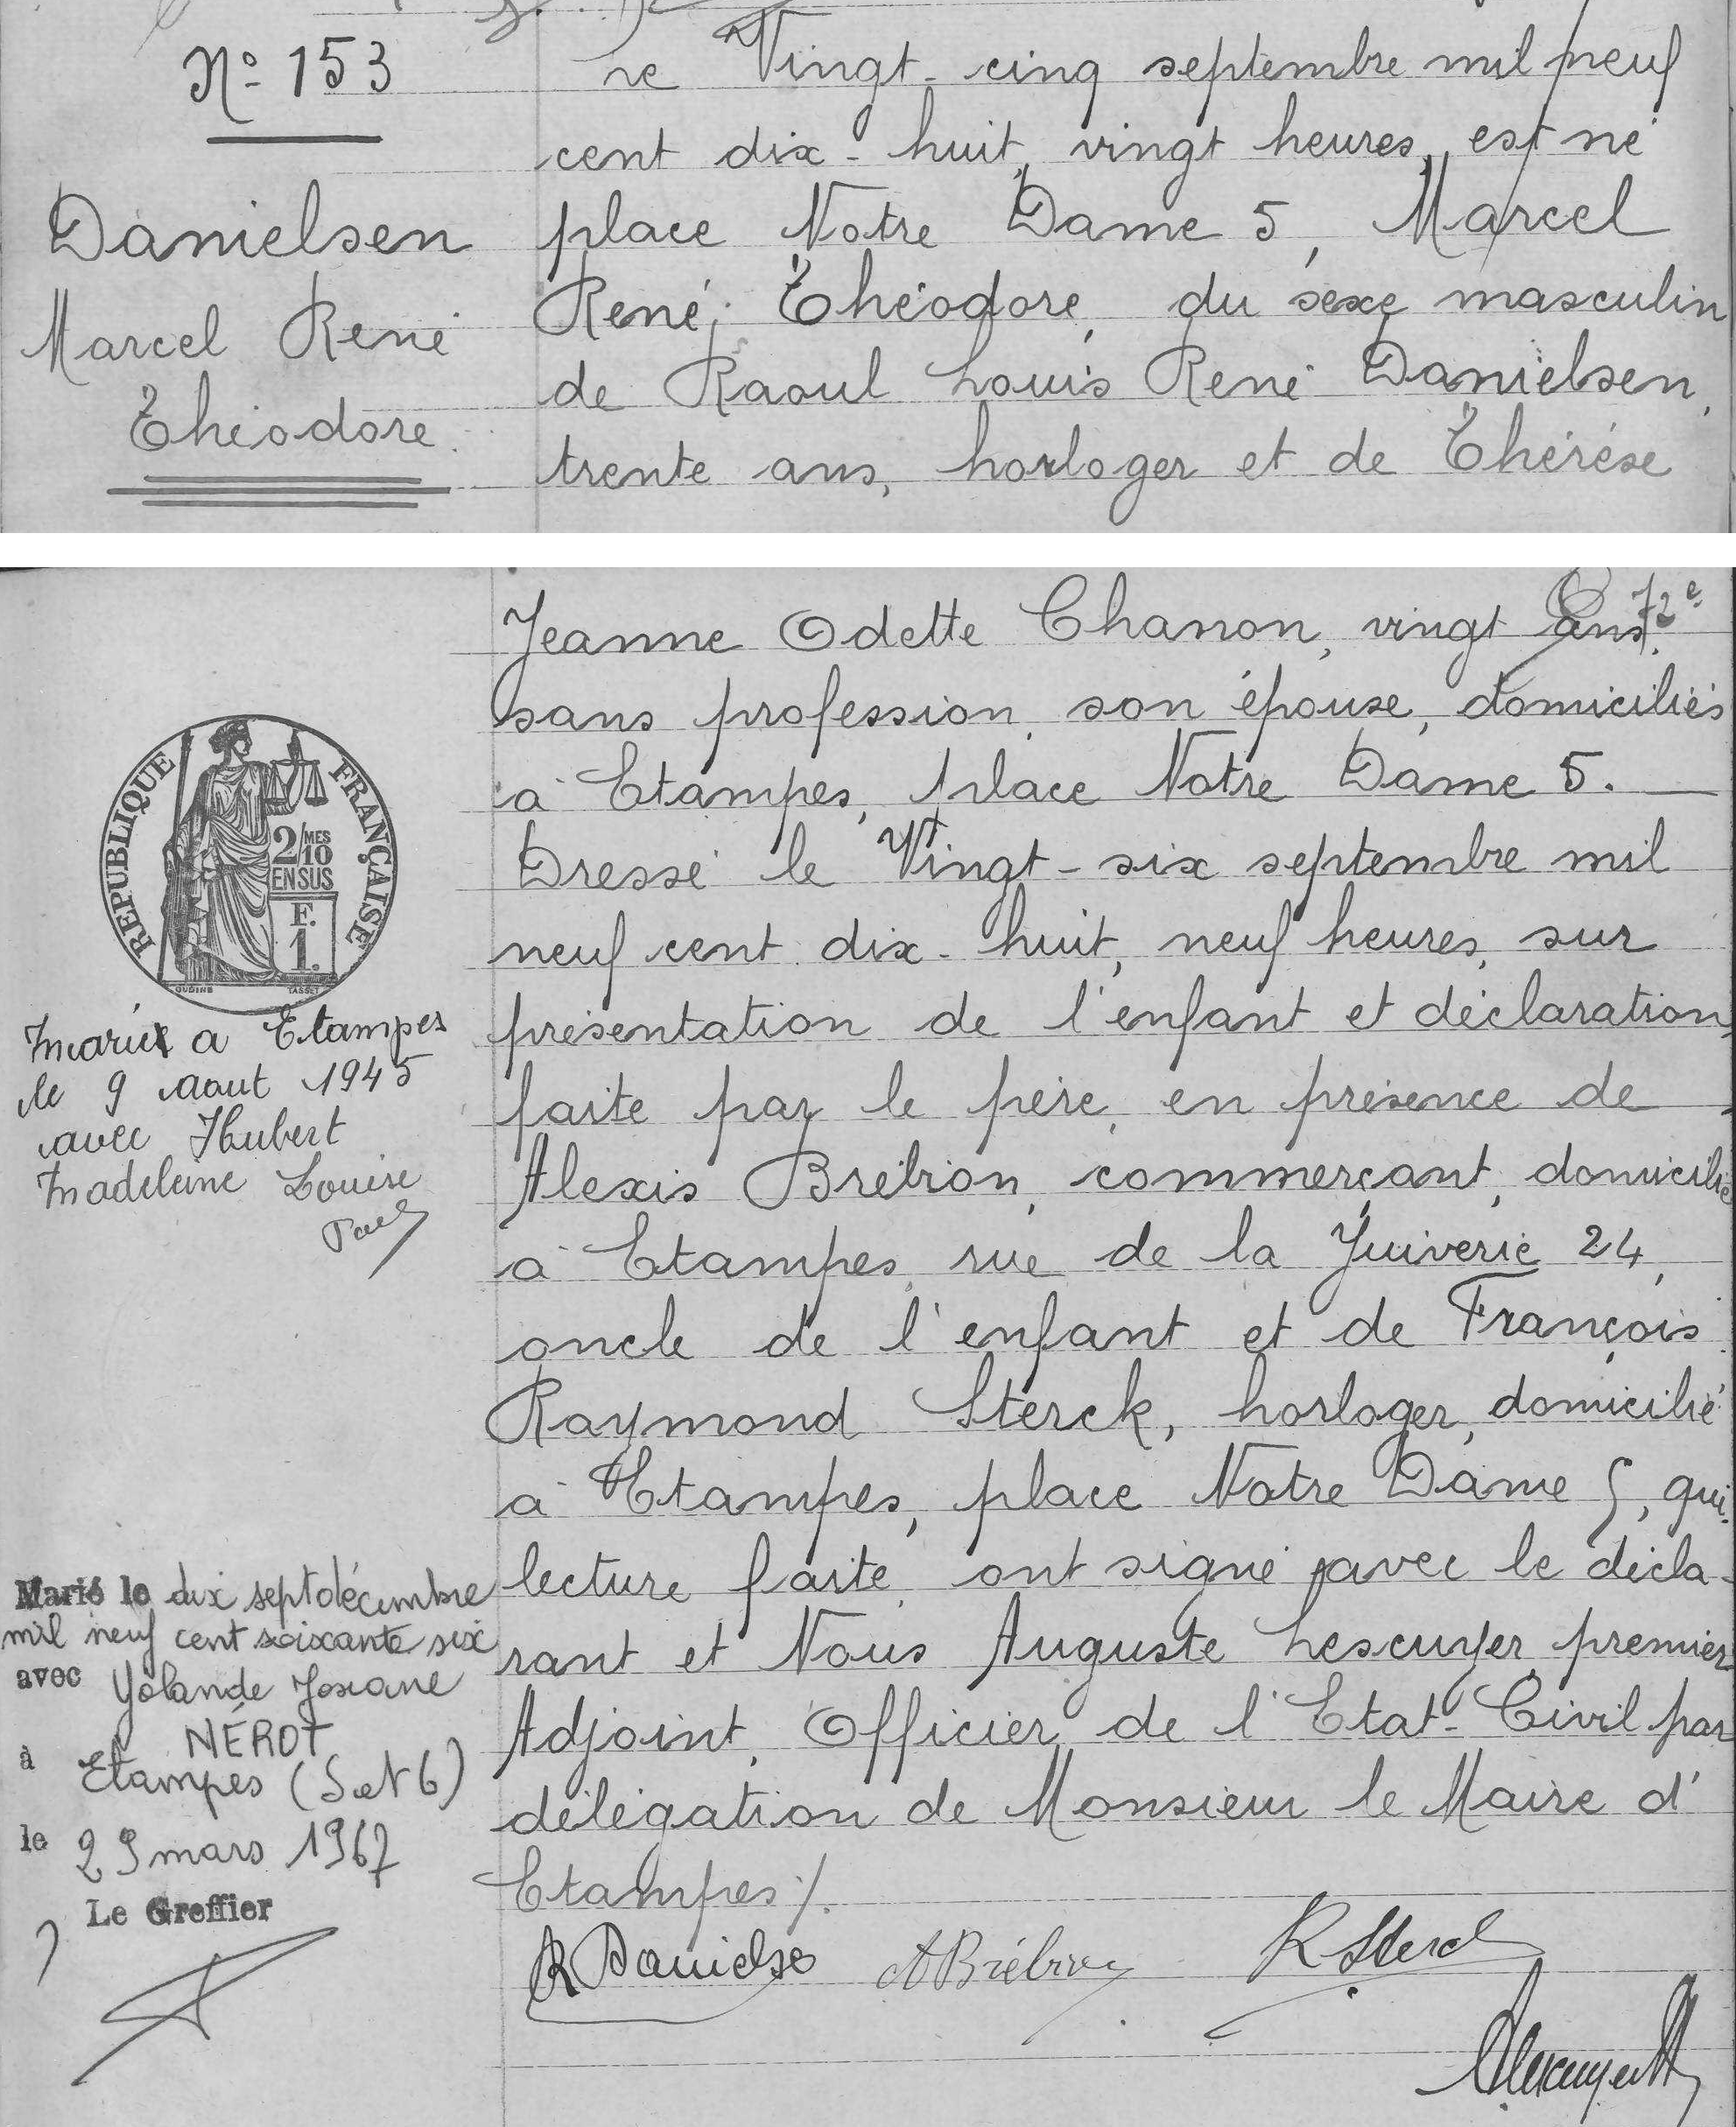 N° 153
Danielsen
Marcel René
Théodore
Le Vingt-cinq septembre mil neuf
cent dix-huit, vingt heures, est né
place Notre Dame 5, Marcel
René, Théodore, du sexe masculin
de Raoul Louis René Danielsen,
trente ans, horloger et de Thérèse
72e
Jeanne Odette Chanon, vingt ans,
sans profession, son épouse, domiciliés
à Etampes, place Notre Dame 5. —
Dressé le Vingt-six septembre mil
neuf cent dix-huit, neuf heures, sur
présentation de l'enfant et déclaration
faite par le père, en présence de
Alexis Brébion, commerçant, domicilié
à Etampes, rue de la Juiverie 24,
oncle de l'enfant et de François
Raymond Sterck, horloger, domicilié
à Etampes, place Notre Dame 5, qui,
lecture faite, ont signé avec le décla-
rant et Nous Auguste Lescuyer, premier
Adjoint, Officier de l'Etat-Civil par
délégation de Monsieur le Maire d'
Etampes ./.
R Danielse
A Brébion
R Sterck
REPUBLIQUE FRANÇAISE
2/10 MES
EN SUS
F.
1.
OUDINÉ TASSET
Marié à Etampes
le 9 Aout 1945
avec Hubert
Madeleine Louise
Marié le dix sept décembre
mil neuf cent soixante six
avec Yolande Josiane
NÉROT
à Etampes (S et O)
le 29 mars 1967
Le Greffier